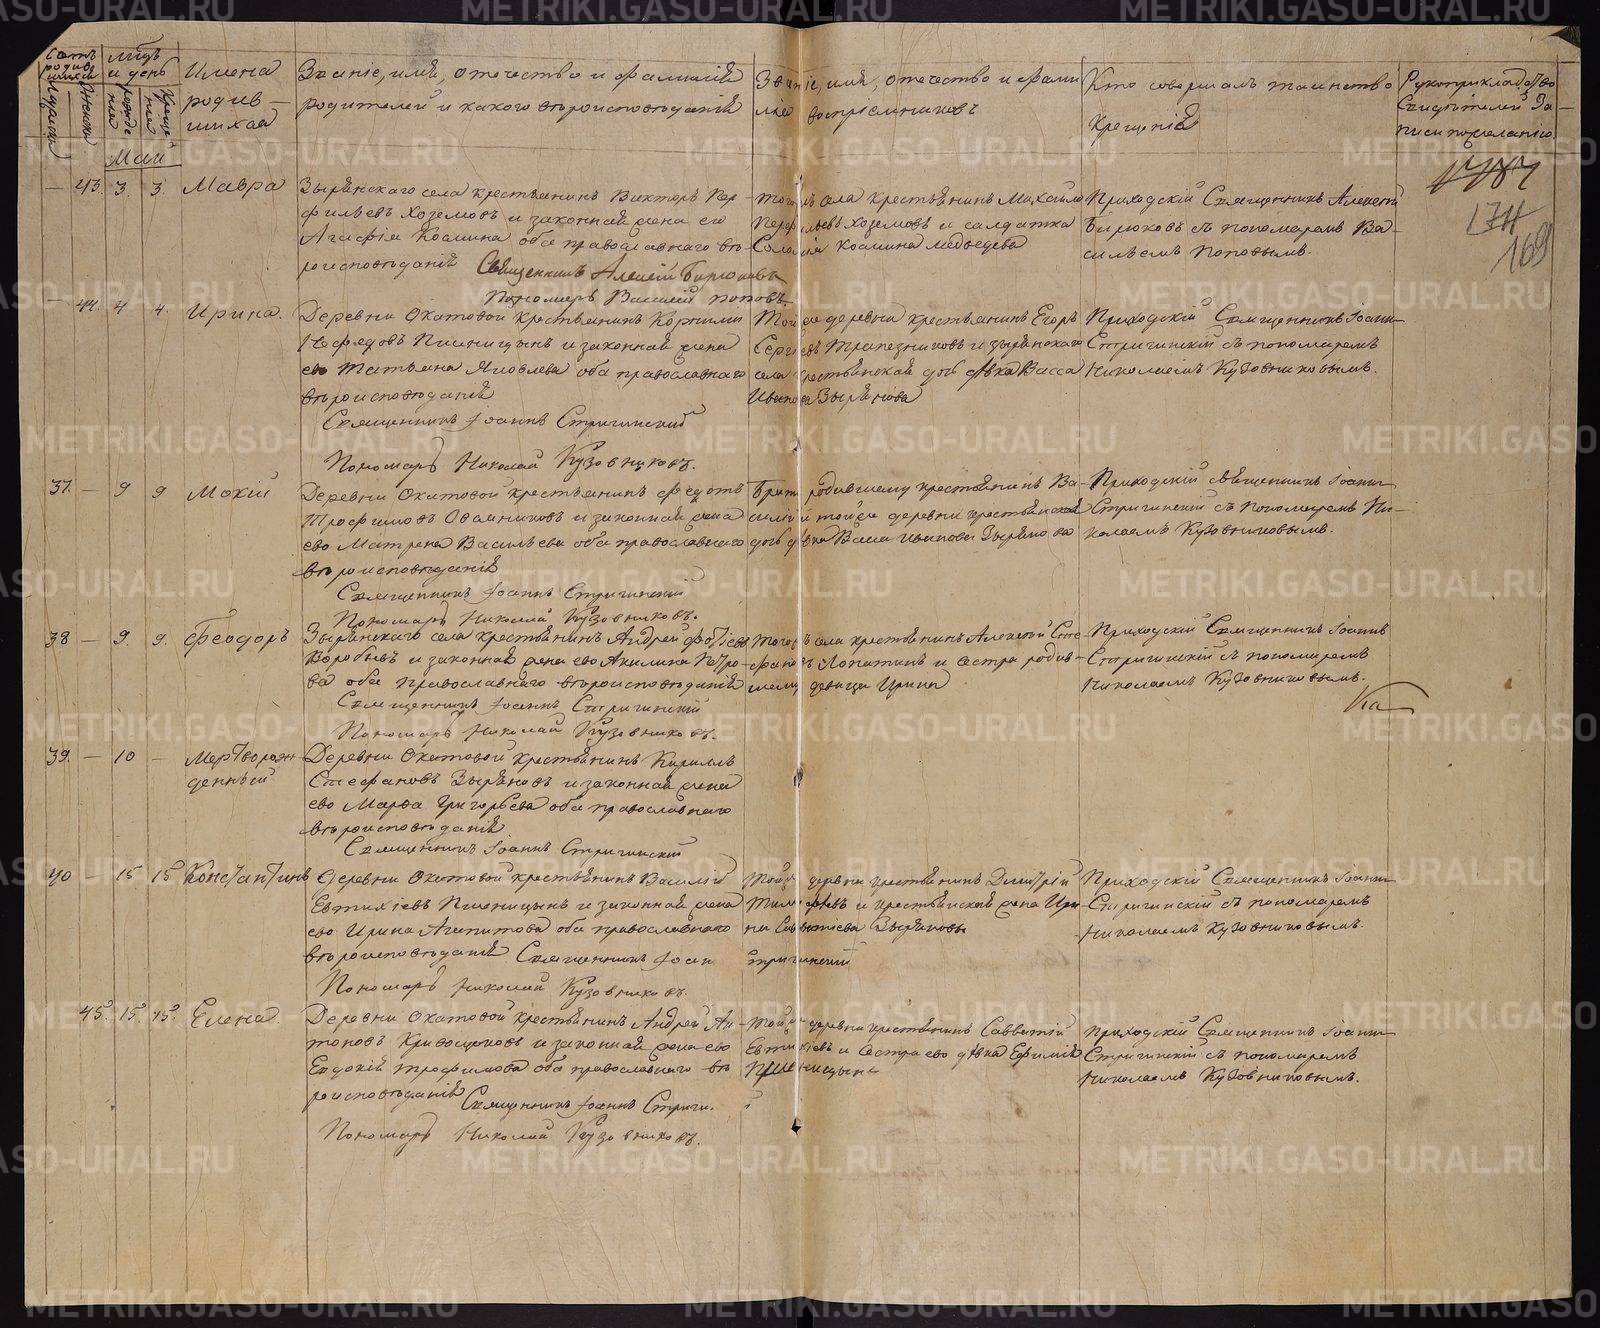 Счетъ родившихся
Мужеска
Женска
Мѣсяцъ и день
рожденія
крещенія
Имена
родив-
шихся
Званіе, имя, отчество и фамилія
родителей и какого вѣроисповѣданія
Званіе, имя, отчество и фами
лія воспріемниковъ
Кто совершалъ таинство
крещенія
Рукоприкладство
Свидѣтелей За
писи по желанію
Май
174
169
— 43. 3. 3. Мавра
Зырянскаго села крестьянинъ Викторъ Пер-
фильевъ Хоземовъ и законная жена его
Агафія Космина оба православнаго вѣ-
роисповѣданія Священникъ Алексій Бирюковъ
Пономарь Василій Поповъ.
Тогожъ села крестьянинъ Михаило
Перфильевъ Хоземовъ и солдатка
Космина Медведева
Приходскій Священникъ Алексій
Бирюковъ съ пономаремъ Ва-
сильемъ Поповымъ.
— 44. 4. 4. Ирина.
Деревни Охатовой крестьянинъ Корнили
Нефедовъ Пшеницынъ и законная жена
его Татьяна Яковлева оба православнаго
вѣроисповѣданія
Священникъ Іоаннъ Стригинскій
Пономарь Николай Кузовниковъ.
Той же деревни крестьянинъ Егоръ
Сергѣевъ Трапезниковъ и зырянскаго
села крестьянская дочь дѣвка Васса
Иванова Зырянова
Приходскій Священникъ Іоаннъ
Стригинскій съ пономаремъ
Николаемъ Кузовниковымъ.
37. — 9 9 Мокій
Деревни Охатовой крестьянинъ Федотъ
Трофимовъ Овчинниковъ и законная жена
ево Матрена Васильева оба православнаго
вѣроисповѣданія
Священникъ Іоаннъ Стригинскій
Пономарь Николай Кузовниковъ.
Братъ родившему крестьянинъ Ва-
силій и той же деревни крестьянской
дочь дѣвка Васса Иванова Зырянова
Приходскій священникъ Іоаннъ
Стригинскій съ пономаремъ Ни-
колаемъ Кузовниковымъ.
38 — 9. 9. Феодоръ
Зырянскаго села крестьянинъ Андрей Фотіевъ
Воробьевъ и законная жена ево Акилина Петро-
ва оба православнаго вѣроисповѣданія
Священникъ Іоаннъ Стригинскій
Пономарь Николай Кузовниковъ.
Тогожъ села крестьянинъ Алексей Сте-
фановъ Лопатинъ и сестра родив-
шему девица Ирина
Приходскій Священникъ Іоаннъ
Стригинскій съ пономаремъ
Николаемъ Кузовниковымъ.
39. — 10 — Мертворож-
денный
Деревни Охатовой крестьянинъ Кириллъ
Стефановъ Зыряновъ и законная жена
ево Марфа Григорьева оба православнаго
вѣроисповѣданія.
Священникъ Іоаннъ Стригинскій
40 — 15 15 Константинъ
Деревни Охатовой крестьянинъ Василій
Евтихіевъ Пшеницынъ и законная жена
ево Ирина Агапитова оба православнаго
вѣроисповѣданія Священникъ Іоан Стригинскій
Пономарь Николай Кузовниковъ.
Тойже деревни крестьянинъ Димитрій
и крестьянская жена Ири-
на Савватіева Зыряновы
Приходскій Священникъ Іоаннъ
Стригинскій съ пономаремъ
Николаемъ Кузовниковымъ.
45. 15. 15. Елена.
Деревни Охатовой крестьянинъ Андрей Ан-
тоновъ Кривощековъ и законная жена ево
Евдокія Трофимова оба православнаго вѣ
роисповѣданія Священникъ Іоаннъ Стриги.
Пономарь Николай Кузовниковъ.
Тойже деревни крестьянинъ Савватій
Евтихіевъ и сестра ево дѣвка Ефимія
Пшеницыны
Приходскій Священникъ Іоаннъ
Стригинскій съ пономаремъ
Николаемъ Кузовниковымъ.
METRIKI.GASO-URAL.RU